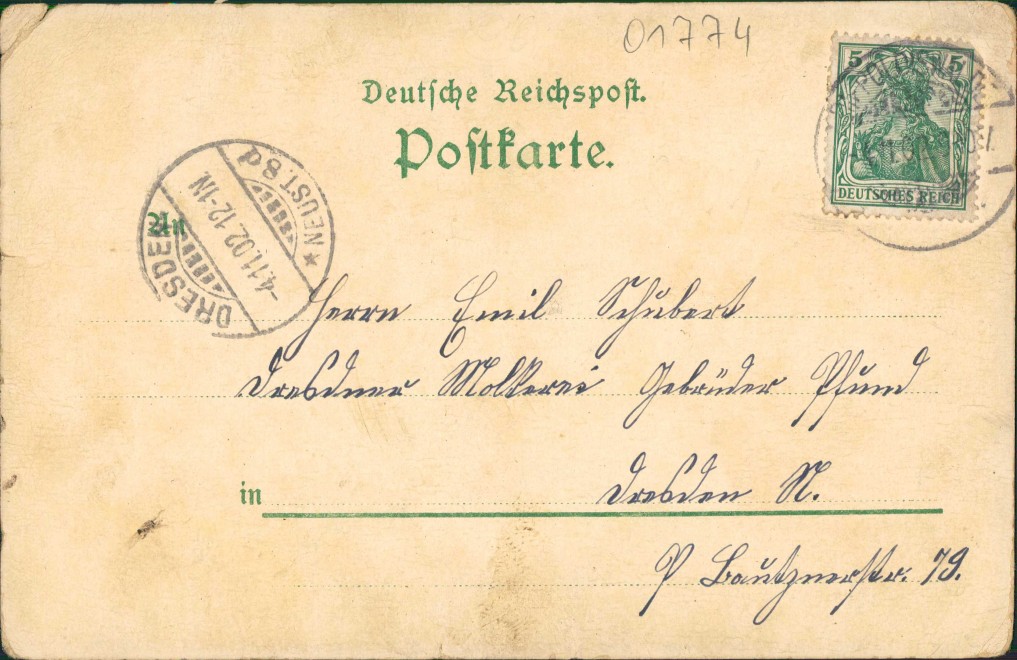 01774
Deutsche Reichspost.
Postkarte.
5 5
DEUTSCHES REICH
DRESDEN
NEUST. 8 p
-4.11.02.12-1N.
An
Herrn Emil Schubert
Dresdner Molkerei Gebrüder Pfund
in Dresden N.
Bautznerstr. 79.